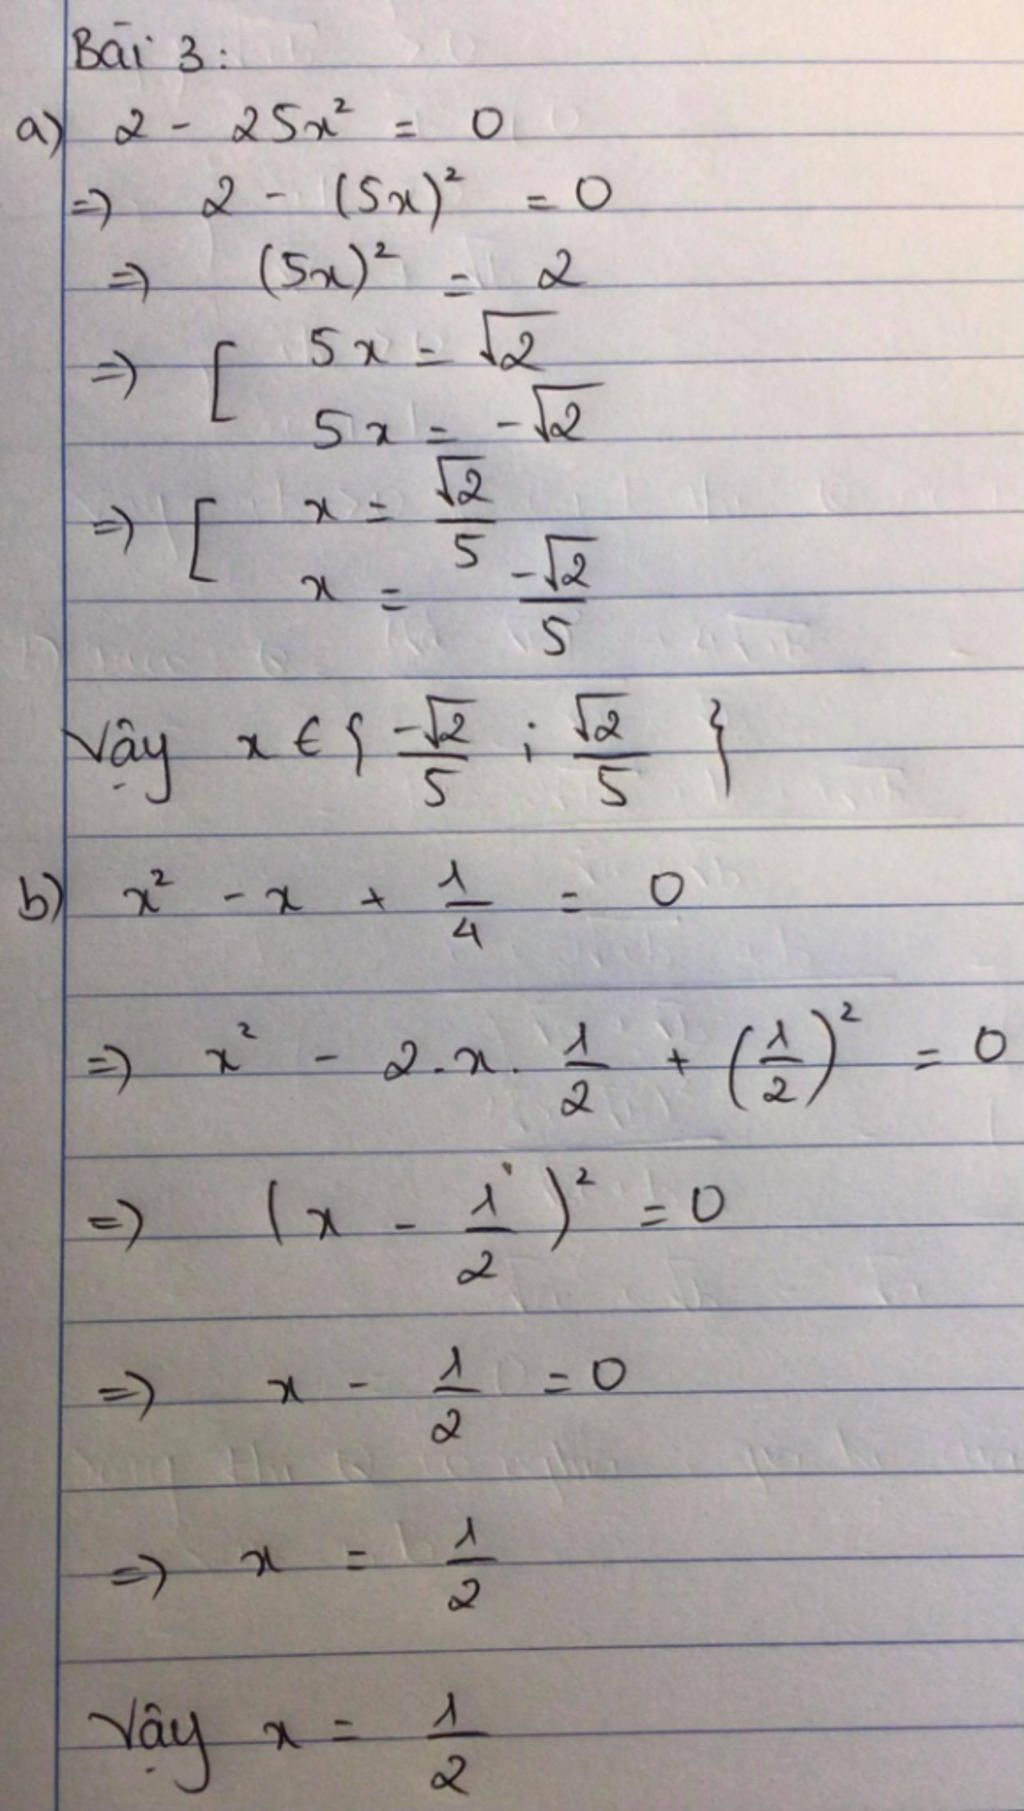 Bài 3:
a) 2 - 25x² = 0
=> 2 - (5x)² = 0
=> (5x)² = 2
=> [ 5x = √2
5x = -√2
=> [ x = √2/5
x = -√2/5
Vậy x ∈ { -√2/5 ; √2/5 }
b) x² - x + 1/4 = 0
=> x² - 2.x. 1/2 + (1/2)² = 0
=> (x - 1/2)² = 0
=> x - 1/2 = 0
=> x = 1/2
Vậy x = 1/2